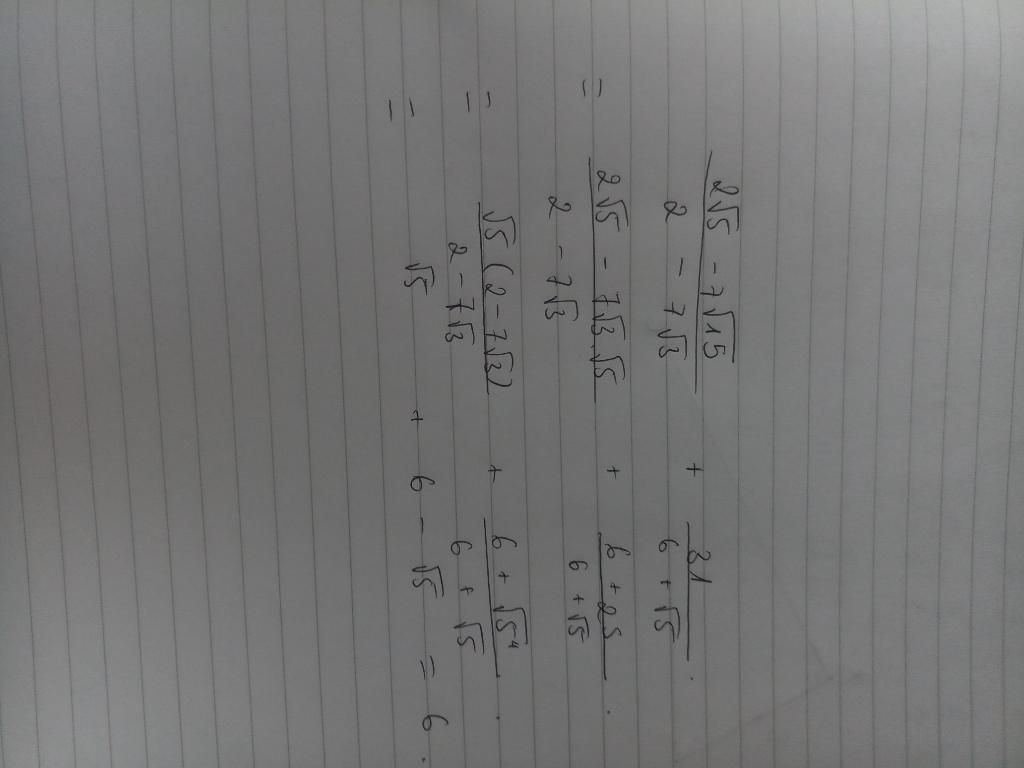 (2√5 - 7√15)/(2 - 7√3) + 31/(6 + √5).
= (2√5 - 7√3√5)/(2 - 7√3) + (6 + 25)/(6 + √5).
= (√5(2 - 7√3))/(2 - 7√3) + (6 + √5⁴)/(6 + √5).
= √5 + 6 - √5 = 6.